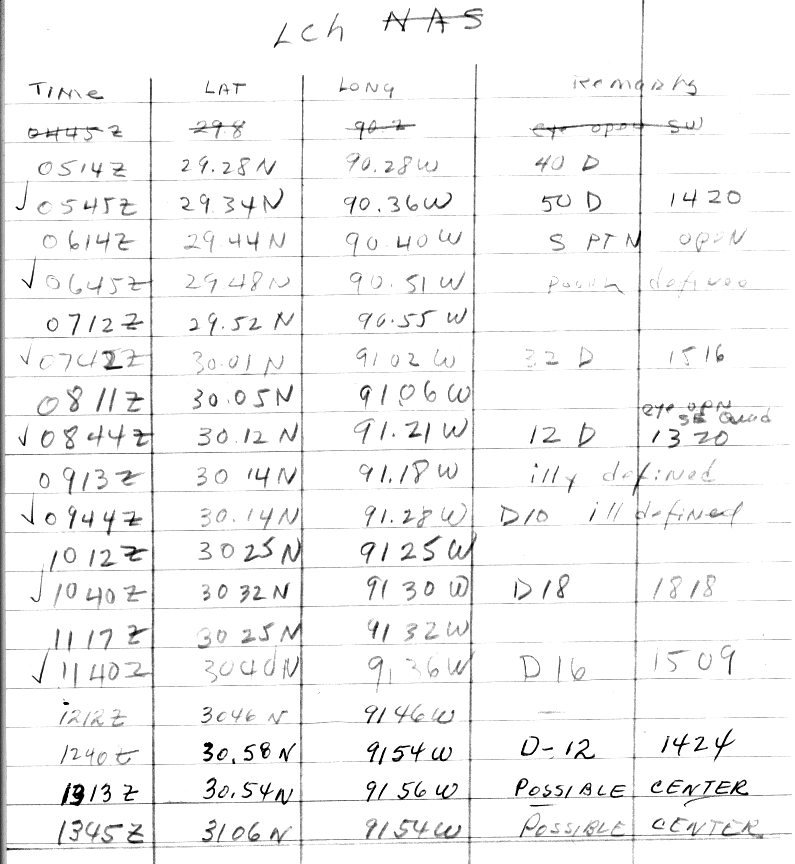 Lch NAS
TIME LAT LONG Remarks
0445Z 29.8 90.2 eye open SW
0514Z 29.28N 90.28W 40 D
√0545Z 29.34N 90.36W 50 D 1420
0614Z 29.44N 90.40W S PTN OPEN
√0645Z 29 48N 90.51W defined
0712Z 29.52N 90.55W
√0742Z 30.01N 91 02W 32 D 1516
0811Z 30.05N 91.06W
eye opn
SE Quad
√0844Z 30.12N 91.21W 12 D 1320
0913Z 30 14N 91.18W illy defined
√0944Z 30.14N 91.28W D10 ill defined
1012Z 30 25N 91 25W
√1040Z 30 32N 91 30W D18 1818
1117Z 30 25N 91 32W
√1140Z 3040N 91 36W D16 1509
1212Z 3046N 9146W —
1240Z 30.58N 9154W D-12 1424
1313Z 30.54N 9156W POSSIBLE CENTER
1345Z 3106N 9154W POSSIBLE CENTER